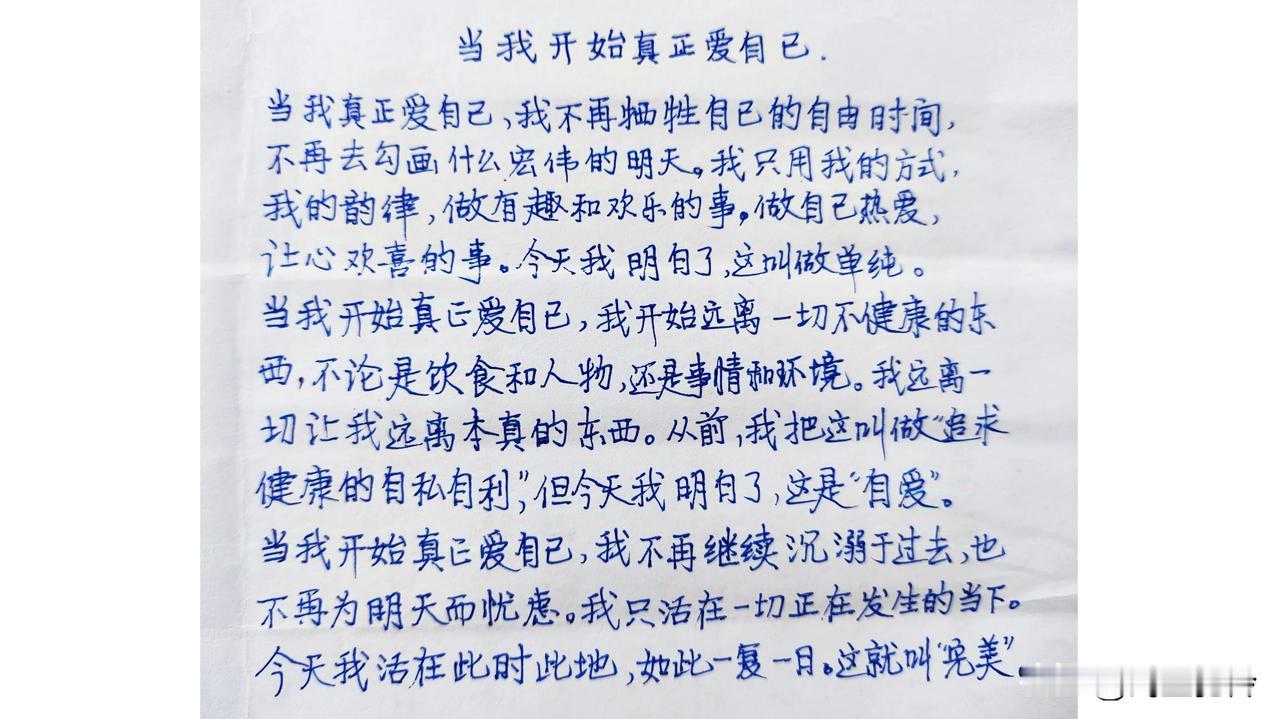 当我开始真正爱自己.
当我真正爱自己,我不再牺牲自己的自由时间,
不再去勾画什么宏伟的明天。我只用我的方式,
我的韵律,做有趣和欢乐的事。做自己热爱,
让心欢喜的事。今天我明白了,这叫做单纯。
当我开始真正爱自己,我开始远离一切不健康的东
西,不论是饮食和人物,还是事情和环境。我远离一
切让我远离本真的东西。从前,我把这叫做“追求
健康的自私自利”,但今天我明白了,这是“自爱”。
当我开始真正爱自己,我不再继续沉溺于过去,也
不再为明天而忧虑。我只活在一切正在发生的当下。
今天我活在此时此地,如此一复一日。这就叫“完美”